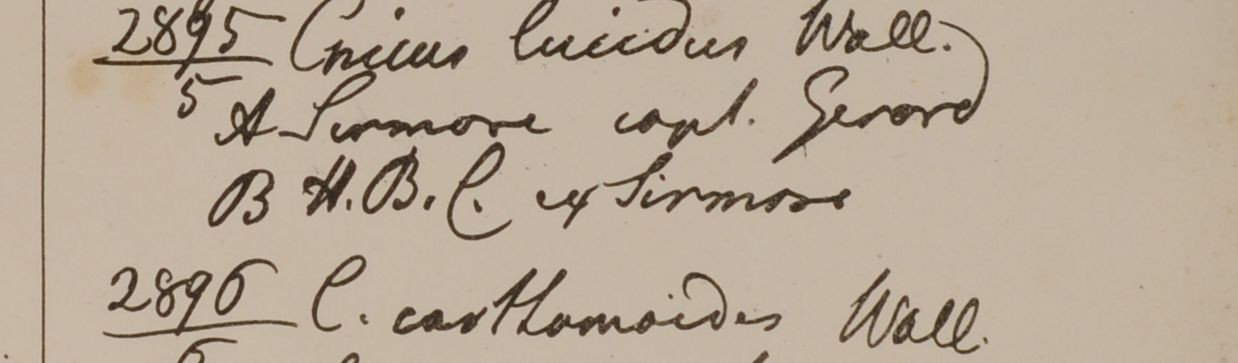 2895 Cnicus lucidus Wall.
5 A Sirmore capt. Gerard
B H.B.C. ex Sirmore
2896 C. carthamoides Wall.
6